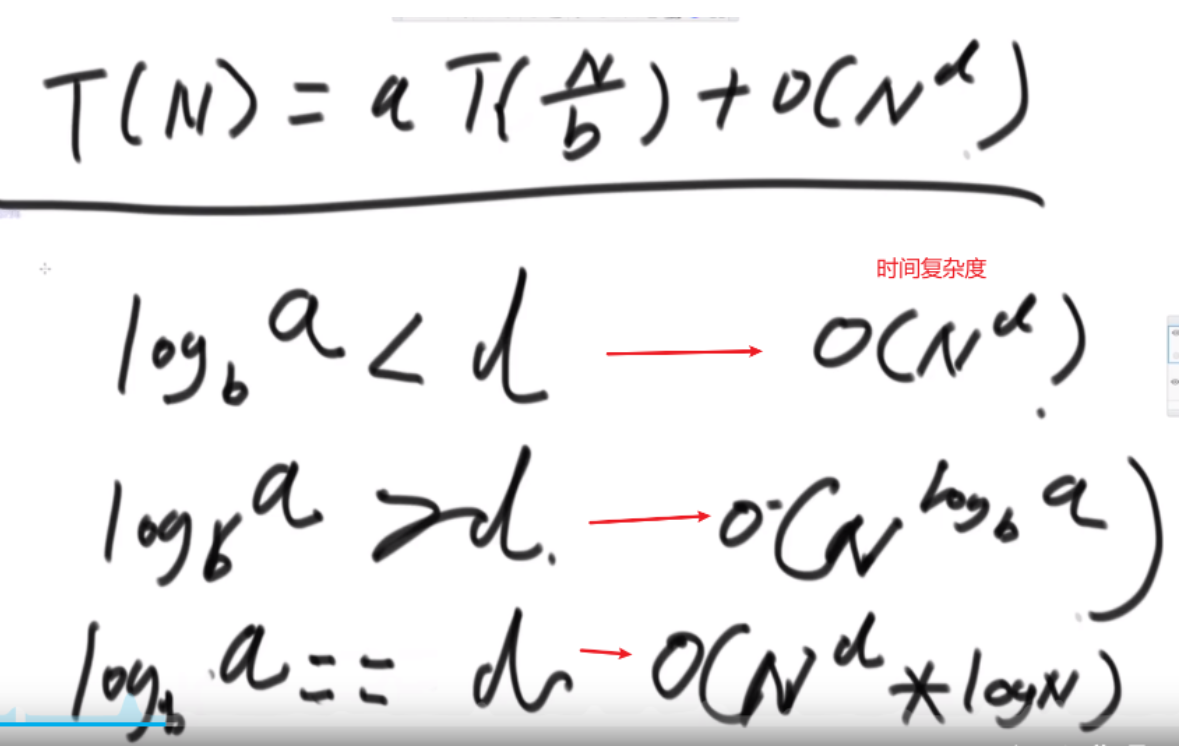 T(N) = a T(N/b) + O(N^d)
时间复杂度
log_b a < d → O(N^d)
log_b a > d. → O(N^(log_b a))
log_b a == d → O(N^d * logN)